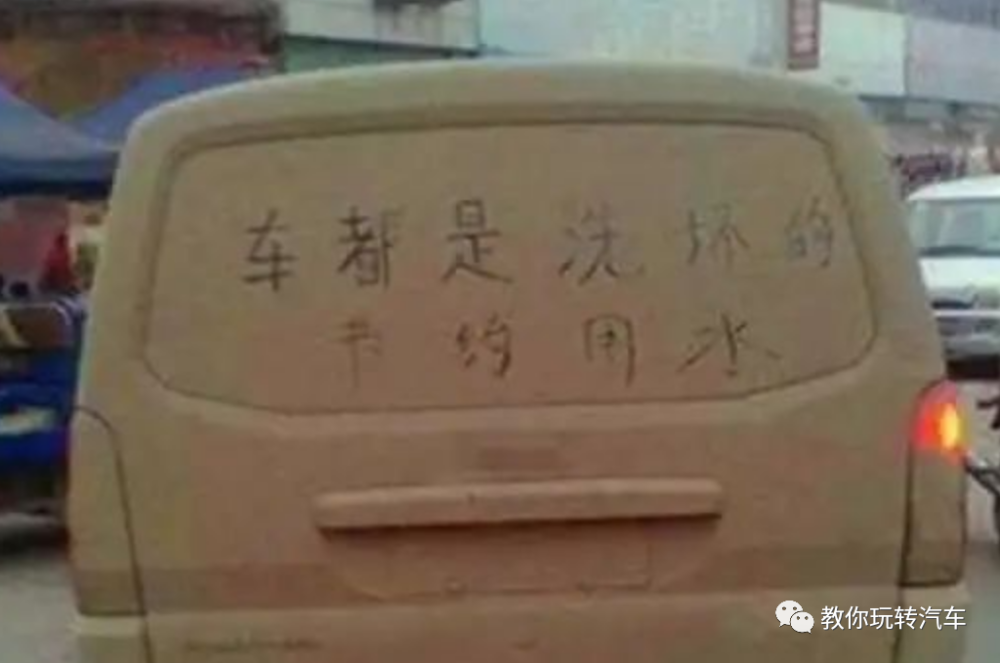 车都是洗坏的
节约用水
教你玩转汽车